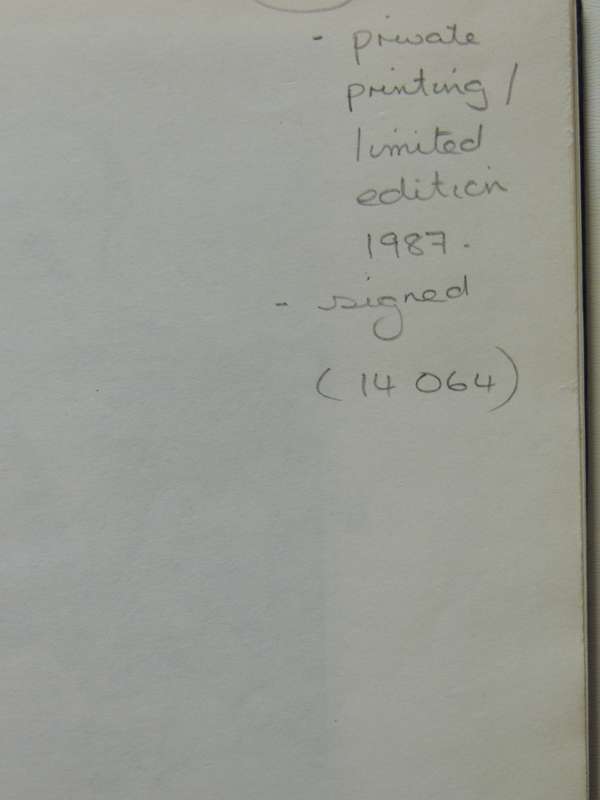 - private
printing /
limited
edition
1987.
- signed
(14 064)